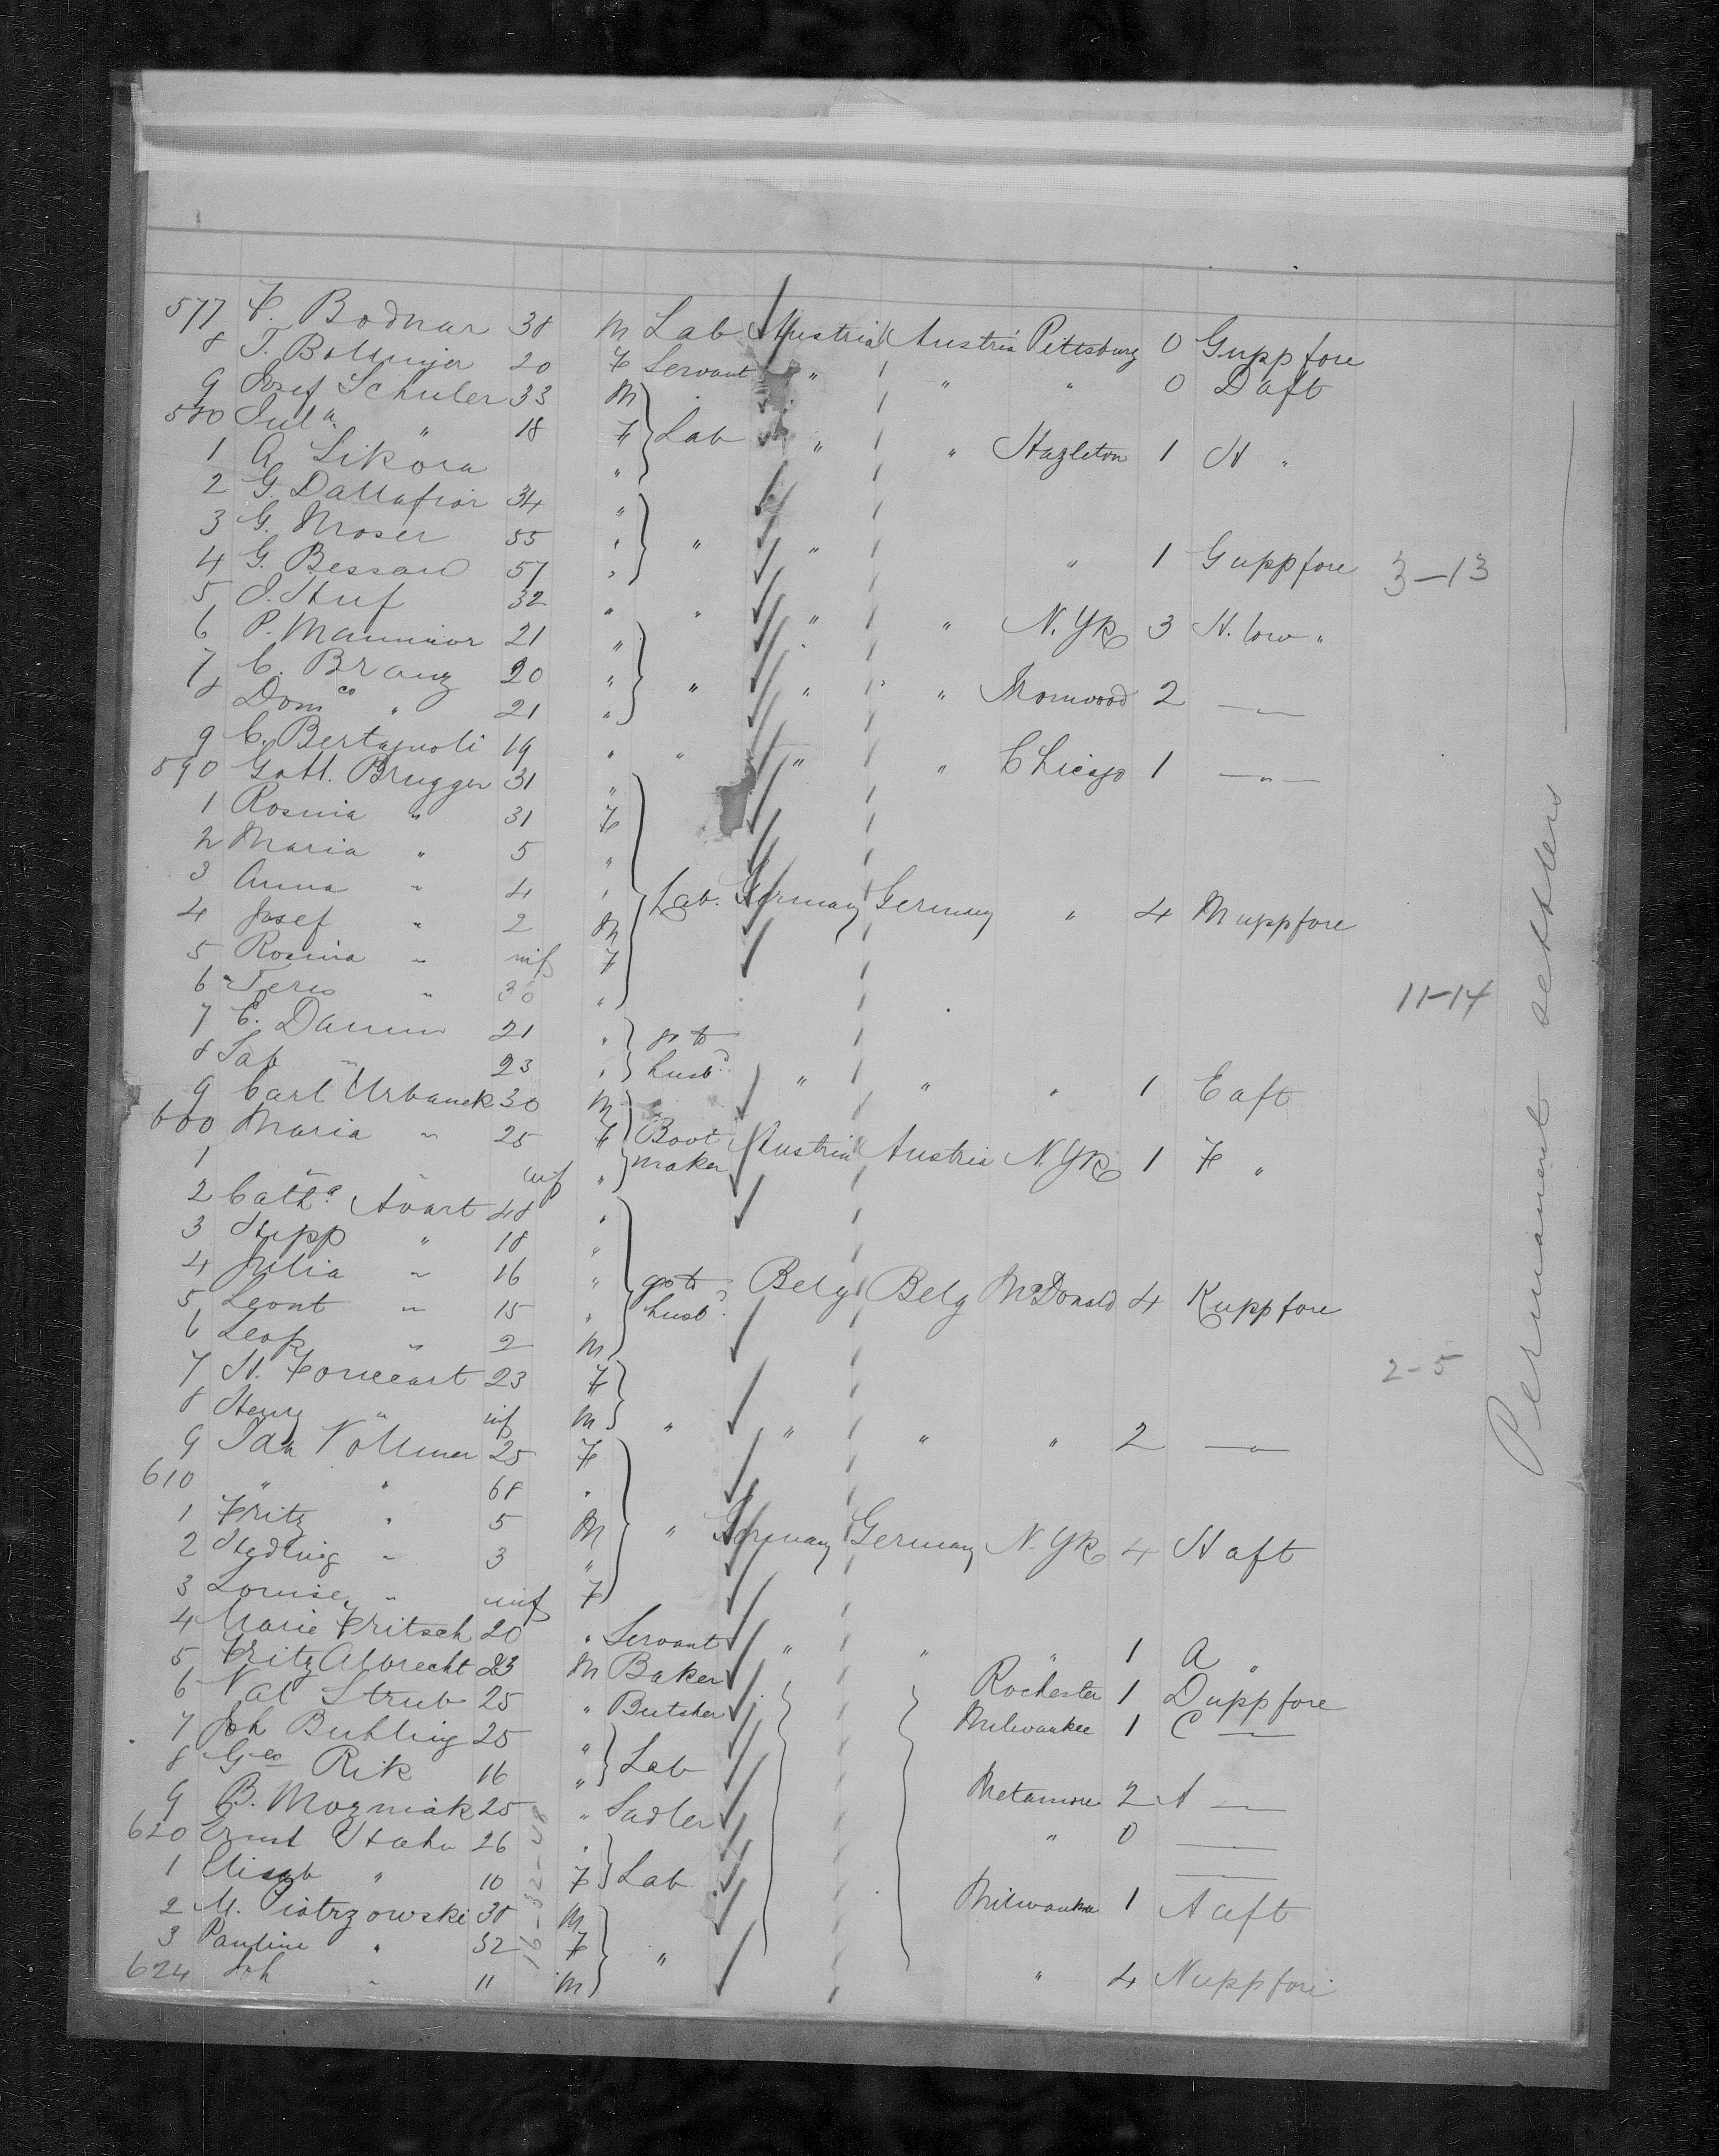 577 F. Bodnar 38 M Lab Austria Austria Pittsburg 0 G upp fore
8 T. Bollinger 20 F Servant " " " 0 D aft
9 Josef Schuler 33 M
580 Jul a " 18 F Lab " " Hazleton 1 H "
1 A. Sikora "
2 G. Dallafior 34 "
3 G. Moser 55 " " " " 1 G upp fore 3-13
4 G. Bessard 57 "
5 J. Stuf 32 " " " " N. Yk 3 H. low "
6 P. 21 "
7 C. Branz 20 " " " " Ironwood 2 — " —
8 Dom co " 21 "
9 C. Bertagnoli 19 " " " " Chicago 1 — " —
590 Gott. Brugger 31 "
1 Rosina " 31 F
2 Maria " 5 "
3 Anna " 4 " Lab. Germany Germany " 4 M upp fore
4 Josef " 2 M
5 Rosina " inf F
6 Teres " 30 " 11-14
7 C. Damm 21 " go to
8 " 23 " husbd. " " " 1 E aft
9 Carl Urbanek 30 M
600 Maria " 25 F Boot maker Austria Austria N. Yk 1 F "
1 " " inf "
2 Catha. Avart 48 "
3 Hipp " 18 "
4 Julia " 16 " go to husbd. Belg Belg McDonald 4 K upp fore
5 Leont " 15 "
6 Leop " 2 M 2-5
7 H. Foucart 23 F
8 Henry " inf M " " " " 2 — " —
9 Ida Vollmer 25 F
610 " " 68 "
1 Fritz " 5 M " Germany Germany N. Yk 4 H aft
2 Hedwig " 3 "
3 Louise " inf F
4 Marie Fritsch 20 " Servant " " " 1 A "
5 Fritz Albrecht 23 M Baker Rochester 1 D upp fore
6 Val Strub 25 " Butcher Milwaukee 1 C —
7 Joh Buhling 25 "
8 Geo Rik 16 " Lab Metamore 2 A —
9 B. Mozniak 25 " Sadler " 0 —
620 Ernst 26 " —
1 Elisab " 10 F Lab Milwaukee 1 A aft
2 M. Piotrzowski 38 M
3 Pauline " 32 F "
624 Joh " 11 M " 4 N upp fore
16-32-48
Permanent settlers